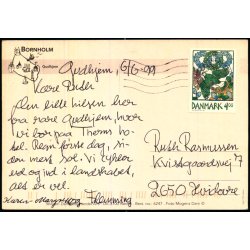 BORNHOLM
Gudhjem
Gudhjem, 6/6-99
Kære Ruth
Den lille hilsen her
fra rare Gudhjem, hvor
vi bor paa Therns ho-
tel. Regn første dag, si-
den mest sol. Vi cykler
ud og ind i landskabet,
alt er vel.
Karen Margrethe og Flemming
DANMARK 4.00
Ruth Rasmussen
Kvissgaardsvej 7
2650 Hvidovre
Best. nr. 4247 - Foto Mogens Dam ©